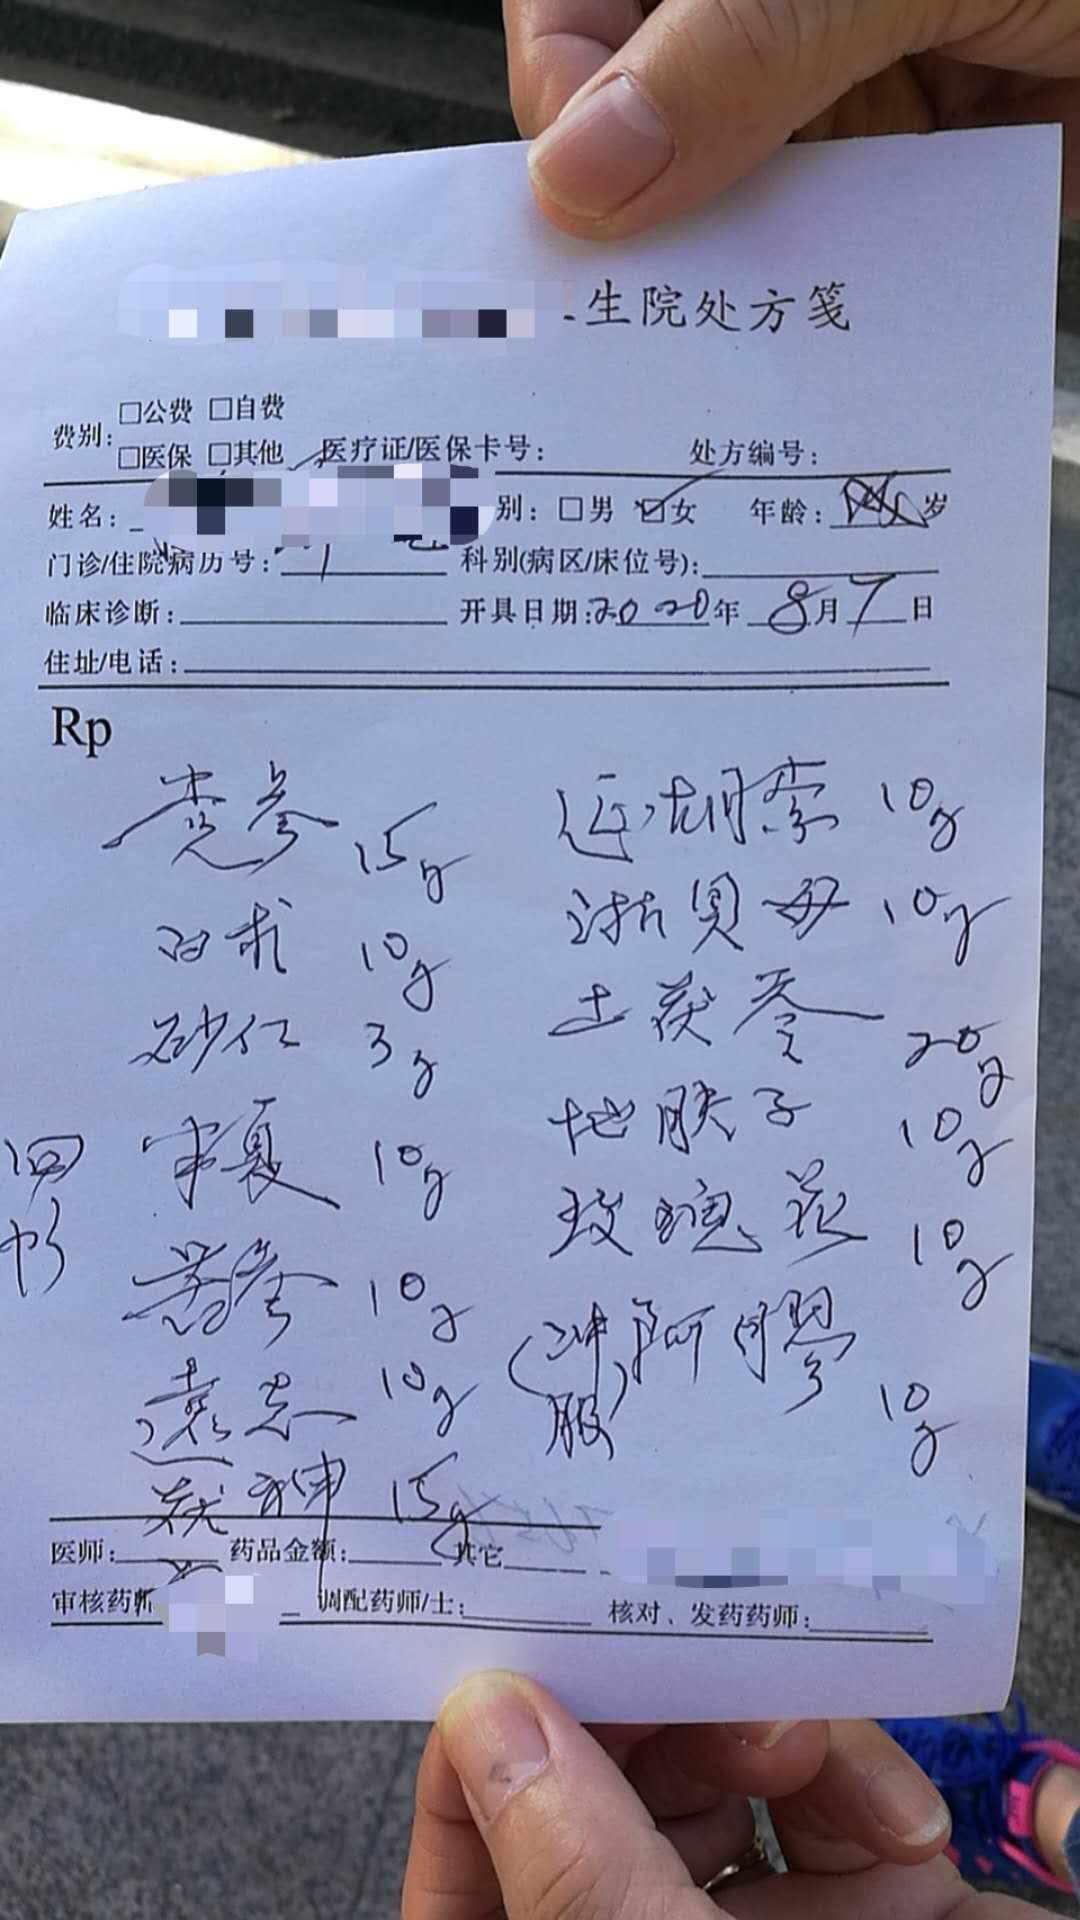 生院处方笺
费别: □公费 □自费
□医保 □其他 医疗证/医保卡号: 处方编号:
姓名: 别: □男 ☑女 年龄: 岁
门诊/住院病历号: 科别(病区/床位号):
临床诊断: 开具日期: 2020年 8月7日
住址/电话:
Rp
党参 15g
白术 10g
砂仁 3g
半夏 10g
苦参 10g
远志 10g
茯神 15g
四
延胡索 10g
浙贝母 10g
土茯苓 20g
地肤子 10g
玫瑰花 10g
(冲服) 阿膠 10g
医师: 药品金额: 其它
审核药师 调配药师/士: 核对、发药药师: